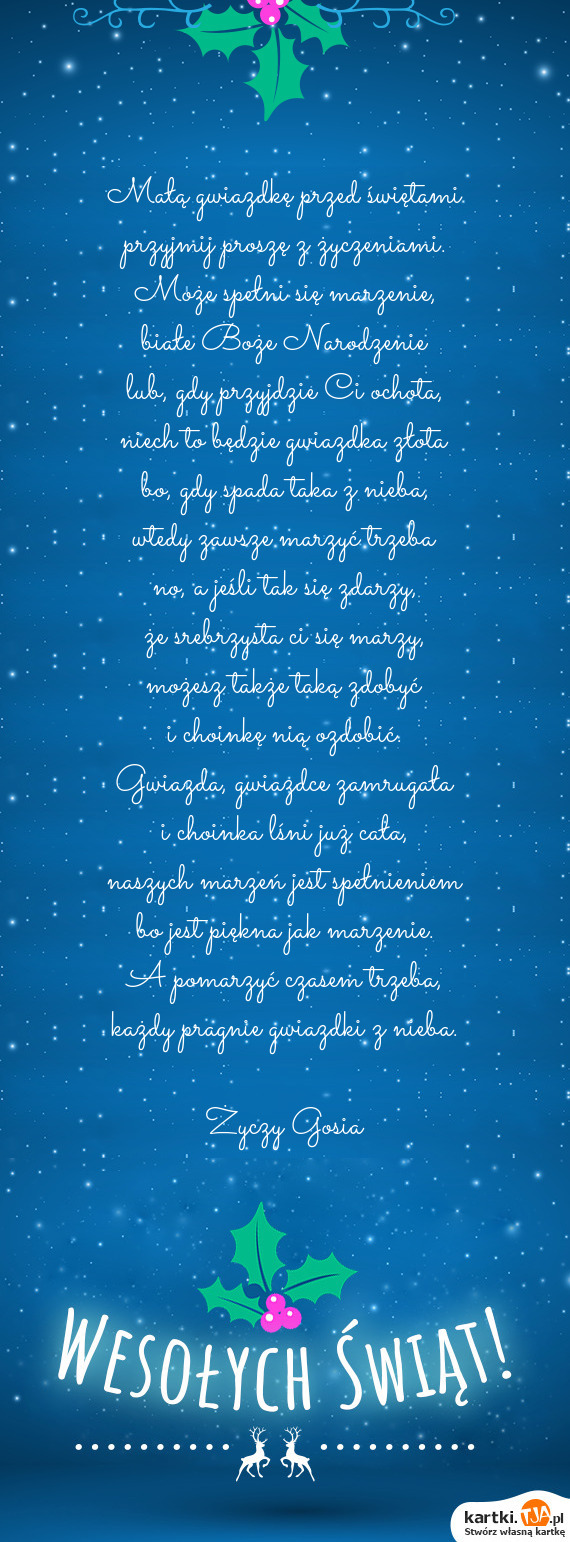 Małą gwiazdkę przed świętami
przyjmij proszę z życzeniami.
Może spełni się marzenie,
białe Boże Narodzenie
lub, gdy przyjdzie Ci ochota,
niech to będzie gwiazdka złota
bo, gdy spada taka z nieba,
wtedy zawsze marzyć trzeba
no, a jeśli tak się zdarzy,
że srebrzysta ci się marzy,
możesz także taką zdobyć
i choinkę nią ozdobić.
Gwiazda, gwiazdce zamrugała
i choinka lśni już cała,
naszych marzeń jest spełnieniem
bo jest piękna jak marzenie.
A pomarzyć czasem trzeba,
każdy pragnie gwiazdki z nieba.
Zyczy Gosia
Wesołych Świąt!
kartki.TJA.pl
Stwórz własną kartkę